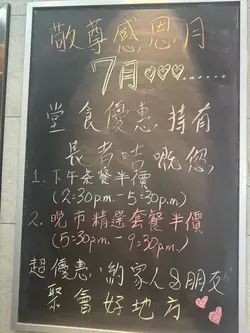 敬尊感恩月
7月♡♡♡......
堂食優惠, 持有
長者咭嘅您
1. 下午茶餐半價
(2:30p.m.-5:30p.m.)
2. 晚市精選套餐半價
(5:30p.m.-9:30p.m.)
超優惠, 約家人&朋友
聚會好地方